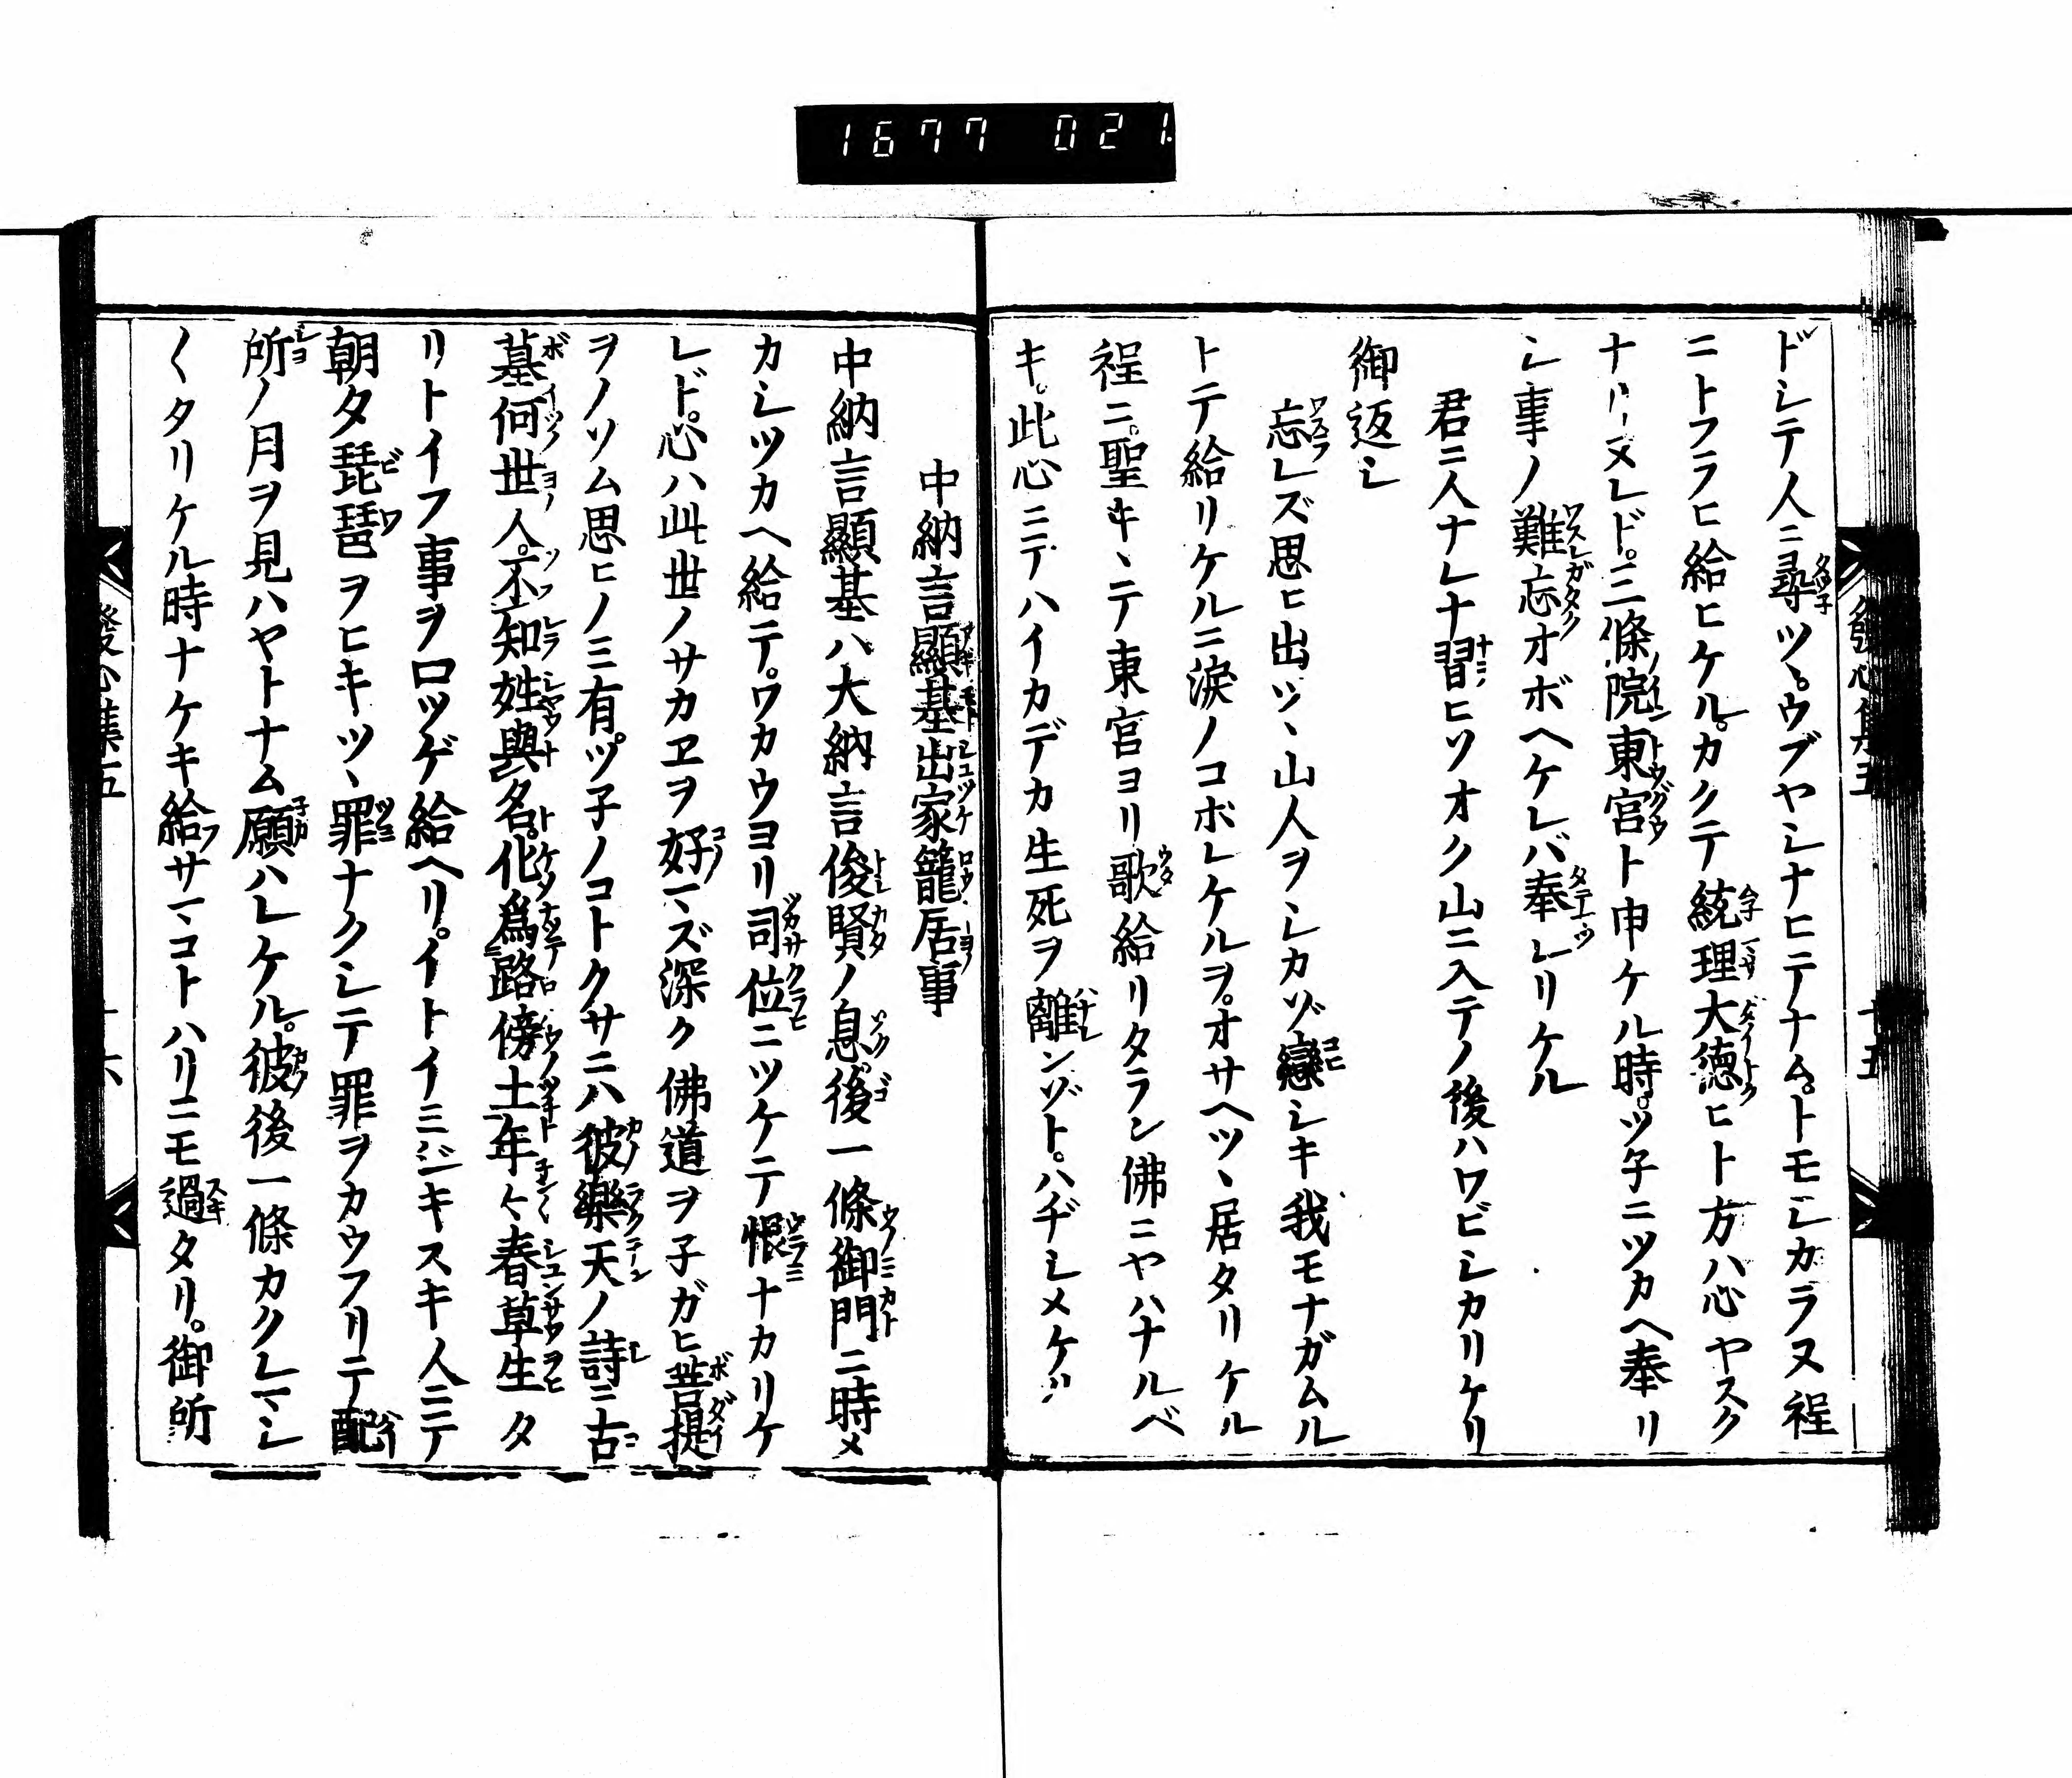 1677 021
發心集五 十五
ドシテ人ニ尋ツヽ。ウブヤシナヒニテナム。トモシカラヌ程
ニトフラヒ給ヒケル。カクテ統理大徳ヒト方ハ心ヤスク
ナリヌレド。三條院東宮ト申ケル時。ツ子ニツカヘ奉リ
シ事ノ難忘オボヘケレバ奉レリケル
君ニ人ナレナ習ヒソオク山ニ入テノ後ハワビシカリケリ
御返シ
忘レズ思ヒ出ツヽ山人ヲシカゾ戀シキ我モナガムル
トテ給リケルニ淚ノコボレケルヲ。オサヘツヽ居タリケル
程ニ。聖キヽテ東宮ヨリ歌給リタラン佛ニヤハナルベ
キ。此心ニテハイカデカ生死ヲ離ンゾト。ハヂシメケリ
中納言顯基出家籠居事
中納言顯基ハ大納言俊賢ノ息。後一條御門ニ時メ
カシツカヘ給テ。ワカウヨリ司位ニツケテ恨ナカリケ
レド。心ハ此世ノサカヱヲ好マズ深ク佛道ヲ子ガヒ菩提
ヲノソム思ヒノミ有。ツ子ノコトクサニハ彼樂天ノ詩ニ古
墓何世人。不知姓與名。化爲路傍土年々春草生タ
リトイフ事ヲ口ツゲ給ヘリ。イトイミジキスキ人ニテ
朝夕琵琶ヲヒキツヽ罪ナクシテ罪ヲカウフリテ配
所ノ月ヲ見ハヤトナム願ハレケル。彼後一條カクレマシ
〱タリケル時ナケキ給サマコトハリニモ過タリ。御所
發心集五 十六